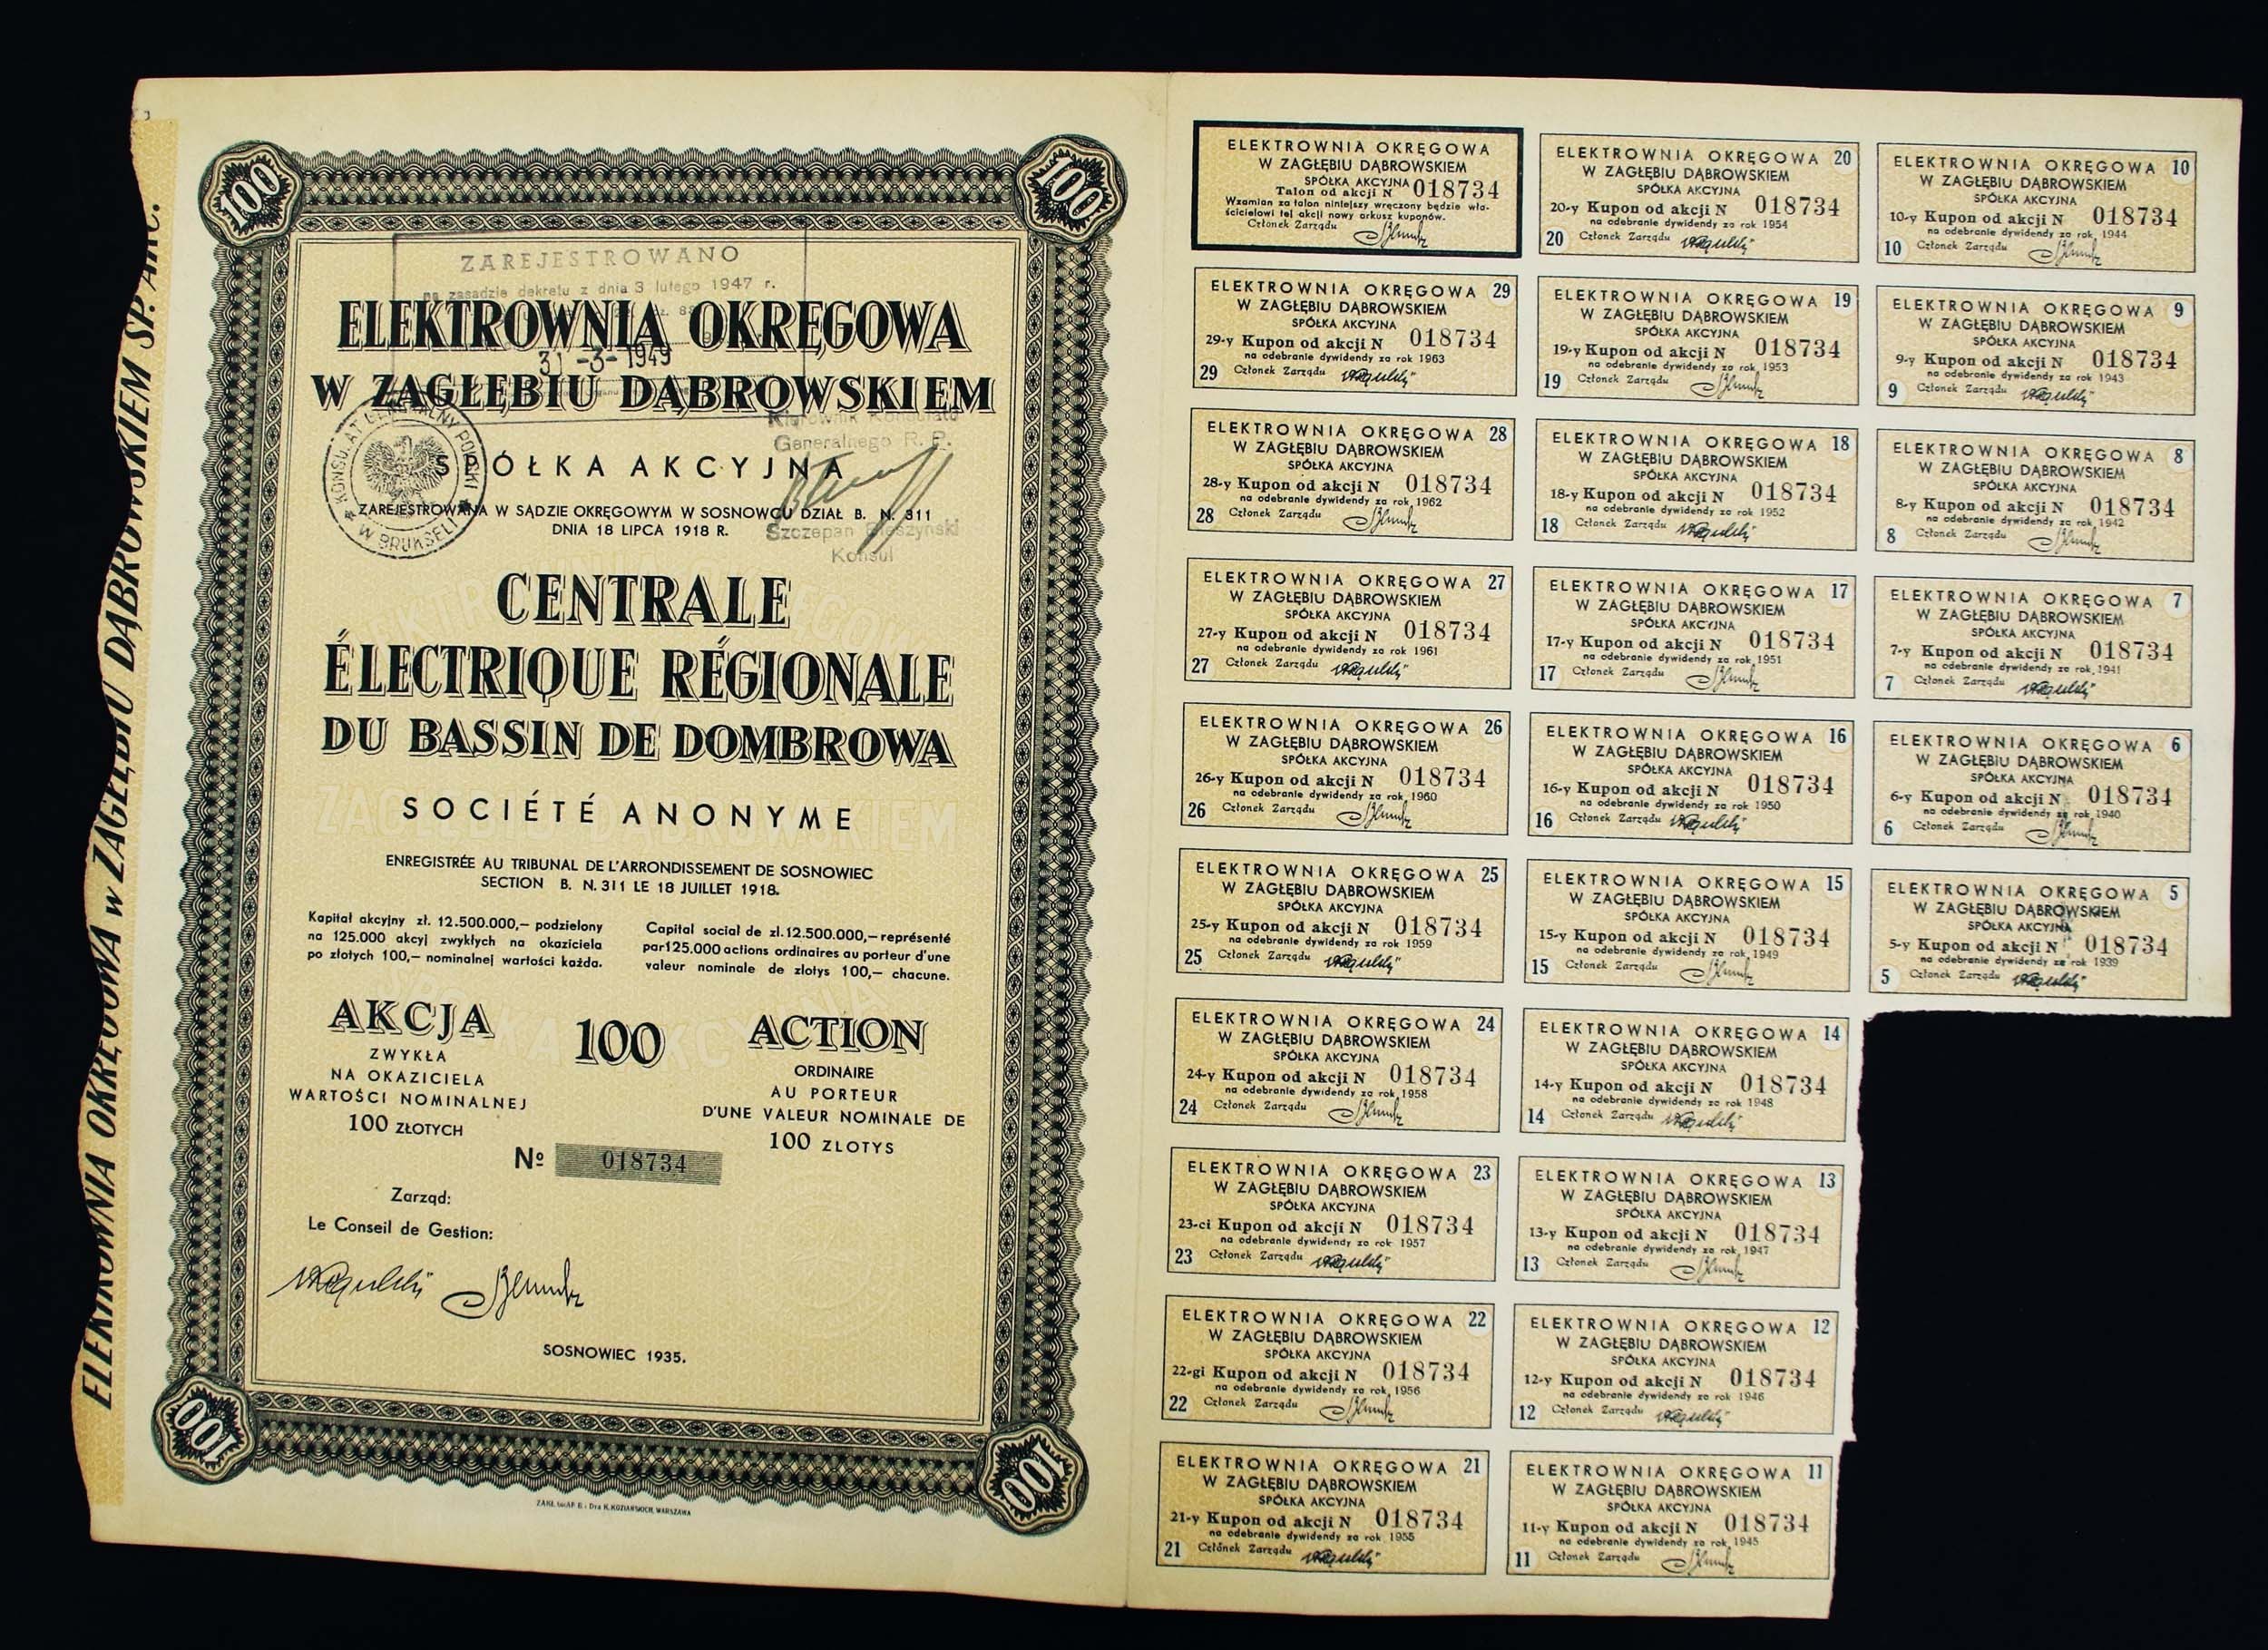 ELEKTROWNIA OKRĘGOWA w ZAGŁĘBIU DĄBROWSKIEM SP. AKC.
100
100
ZAREJESTROWANO
na zasadzie dekretu z dnia 3 lutego 1947 r.
ELEKTROWNIA OKRĘGOWA
31 -3- 1949
W ZAGŁĘBIU DĄBROWSKIEM
Kierownik Konsulatu
Generalnego R. P.
KONSULAT GENERALNY POLSKI
W BRUKSELI
SPÓŁKA AKCYJNA
ZAREJESTROWANA W SĄDZIE OKRĘGOWYM W SOSNOWCU DZIAŁ B. N. 311
DNIA 18 LIPCA 1918 R.
Szczepan
Konsul
CENTRALE
ÉLECTRIQUE RÉGIONALE
DU BASSIN DE DOMBROWA
SOCIÉTÉ ANONYME
ENREGISTRÉE AU TRIBUNAL DE L'ARRONDISSEMENT DE SOSNOWIEC
SECTION B. N. 311 LE 18 JUILLET 1918.
Kapitał akcyjny zł. 12.500.000,— podzielony
na 125.000 akcyj zwykłych na okaziciela
po złotych 100,— nominalnej wartości każda.
Capital social de zl. 12.500.000,— représenté
par 125.000 actions ordinaires au porteur d'une
valeur nominale de zlotys 100,— chacune.
AKCJA
ZWYKŁA
NA OKAZICIELA
WARTOŚCI NOMINALNEJ
100 ZŁOTYCH
100
ACTION
ORDINAIRE
AU PORTEUR
D'UNE VALEUR NOMINALE DE
100 ZLOTYS
№ 018734
Zarząd:
Le Conseil de Gestion:
SOSNOWIEC 1935.
100
100
ELEKTROWNIA OKRĘGOWA
W ZAGŁĘBIU DĄBROWSKIEM
SPÓŁKA AKCYJNA
Talon od akcji N 018734
Wzamian za talon niniejszy wręczony będzie wła-
ścicielowi tej akcji nowy arkusz kuponów.
Członek Zarządu
ELEKTROWNIA OKRĘGOWA 29
W ZAGŁĘBIU DĄBROWSKIEM
SPÓŁKA AKCYJNA
29-y Kupon od akcji N 018734
na odebranie dywidendy za rok 1963
29 Członek Zarządu
ELEKTROWNIA OKRĘGOWA 28
W ZAGŁĘBIU DĄBROWSKIEM
SPÓŁKA AKCYJNA
28-y Kupon od akcji N 018734
na odebranie dywidendy za rok 1962
28 Członek Zarządu
ELEKTROWNIA OKRĘGOWA 27
W ZAGŁĘBIU DĄBROWSKIEM
SPÓŁKA AKCYJNA
27-y Kupon od akcji N 018734
na odebranie dywidendy za rok 1961
27 Członek Zarządu
ELEKTROWNIA OKRĘGOWA 26
W ZAGŁĘBIU DĄBROWSKIEM
SPÓŁKA AKCYJNA
26-y Kupon od akcji N 018734
na odebranie dywidendy za rok 1960
26 Członek Zarządu
ELEKTROWNIA OKRĘGOWA 25
W ZAGŁĘBIU DĄBROWSKIEM
SPÓŁKA AKCYJNA
25-y Kupon od akcji N 018734
na odebranie dywidendy za rok 1959
25 Członek Zarządu
ELEKTROWNIA OKRĘGOWA 24
W ZAGŁĘBIU DĄBROWSKIEM
SPÓŁKA AKCYJNA
24-y Kupon od akcji N 018734
na odebranie dywidendy za rok 1958
24 Członek Zarządu
ELEKTROWNIA OKRĘGOWA 23
W ZAGŁĘBIU DĄBROWSKIEM
SPÓŁKA AKCYJNA
23-ci Kupon od akcji N 018734
na odebranie dywidendy za rok 1957
23 Członek Zarządu
ELEKTROWNIA OKRĘGOWA 22
W ZAGŁĘBIU DĄBROWSKIEM
SPÓŁKA AKCYJNA
22-gi Kupon od akcji N 018734
na odebranie dywidendy za rok 1956
22 Członek Zarządu
ELEKTROWNIA OKRĘGOWA 21
W ZAGŁĘBIU DĄBROWSKIEM
SPÓŁKA AKCYJNA
21-y Kupon od akcji N 018734
na odebranie dywidendy za rok 1955
21 Członek Zarządu
ELEKTROWNIA OKRĘGOWA 20
W ZAGŁĘBIU DĄBROWSKIEM
SPÓŁKA AKCYJNA
20-y Kupon od akcji N 018734
na odebranie dywidendy za rok 1954
20 Członek Zarządu
ELEKTROWNIA OKRĘGOWA 19
W ZAGŁĘBIU DĄBROWSKIEM
SPÓŁKA AKCYJNA
19-y Kupon od akcji N 018734
na odebranie dywidendy za rok 1953
19 Członek Zarządu
ELEKTROWNIA OKRĘGOWA 18
W ZAGŁĘBIU DĄBROWSKIEM
SPÓŁKA AKCYJNA
18-y Kupon od akcji N 018734
na odebranie dywidendy za rok 1952
18 Członek Zarządu
ELEKTROWNIA OKRĘGOWA 17
W ZAGŁĘBIU DĄBROWSKIEM
SPÓŁKA AKCYJNA
17-y Kupon od akcji N 018734
na odebranie dywidendy za rok 1951
17 Członek Zarządu
ELEKTROWNIA OKRĘGOWA 16
W ZAGŁĘBIU DĄBROWSKIEM
SPÓŁKA AKCYJNA
16-y Kupon od akcji N 018734
na odebranie dywidendy za rok 1950
16 Członek Zarządu
ELEKTROWNIA OKRĘGOWA 15
W ZAGŁĘBIU DĄBROWSKIEM
SPÓŁKA AKCYJNA
15-y Kupon od akcji N 018734
na odebranie dywidendy za rok 1949
15 Członek Zarządu
ELEKTROWNIA OKRĘGOWA 14
W ZAGŁĘBIU DĄBROWSKIEM
SPÓŁKA AKCYJNA
14-y Kupon od akcji N 018734
na odebranie dywidendy za rok 1948
14 Członek Zarządu
ELEKTROWNIA OKRĘGOWA 13
W ZAGŁĘBIU DĄBROWSKIEM
SPÓŁKA AKCYJNA
13-y Kupon od akcji N 018734
na odebranie dywidendy za rok 1947
13 Członek Zarządu
ELEKTROWNIA OKRĘGOWA 12
W ZAGŁĘBIU DĄBROWSKIEM
SPÓŁKA AKCYJNA
12-y Kupon od akcji N 018734
na odebranie dywidendy za rok 1946
12 Członek Zarządu
ELEKTROWNIA OKRĘGOWA 11
W ZAGŁĘBIU DĄBROWSKIEM
SPÓŁKA AKCYJNA
11-y Kupon od akcji N 018734
na odebranie dywidendy za rok 1945
11 Członek Zarządu
ELEKTROWNIA OKRĘGOWA 10
W ZAGŁĘBIU DĄBROWSKIEM
SPÓŁKA AKCYJNA
10-y Kupon od akcji N 018734
na odebranie dywidendy za rok 1944
10 Członek Zarządu
ELEKTROWNIA OKRĘGOWA 9
W ZAGŁĘBIU DĄBROWSKIEM
SPÓŁKA AKCYJNA
9-y Kupon od akcji N 018734
na odebranie dywidendy za rok 1943
9 Członek Zarządu
ELEKTROWNIA OKRĘGOWA 8
W ZAGŁĘBIU DĄBROWSKIEM
SPÓŁKA AKCYJNA
8-y Kupon od akcji N 018734
na odebranie dywidendy za rok 1942
8 Członek Zarządu
ELEKTROWNIA OKRĘGOWA 7
W ZAGŁĘBIU DĄBROWSKIEM
SPÓŁKA AKCYJNA
7-y Kupon od akcji N 018734
na odebranie dywidendy za rok 1941
7 Członek Zarządu
ELEKTROWNIA OKRĘGOWA 6
W ZAGŁĘBIU DĄBROWSKIEM
SPÓŁKA AKCYJNA
6-y Kupon od akcji N 018734
na odebranie dywidendy za rok 1940
6 Członek Zarządu
ELEKTROWNIA OKRĘGOWA 5
W ZAGŁĘBIU DĄBROWSKIEM
SPÓŁKA AKCYJNA
5-y Kupon od akcji N 018734
na odebranie dywidendy za rok 1939
5 Członek Zarządu